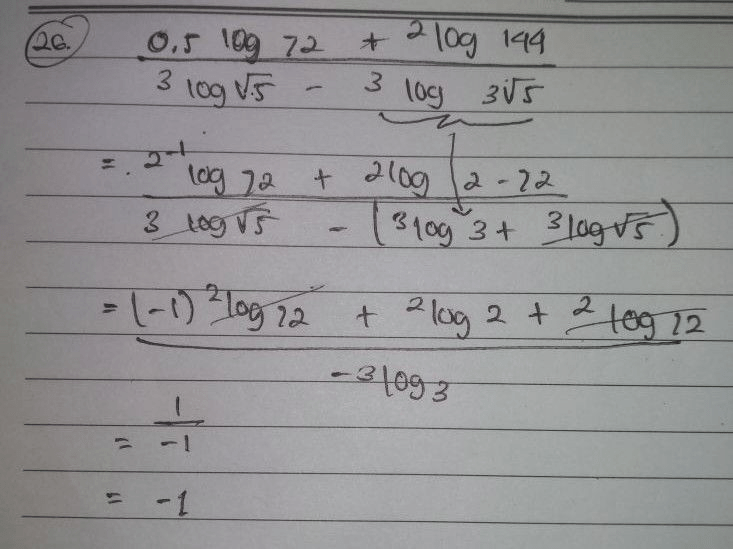 26. 0.5 log 72 + ²log 144
³log√5 - ³log 3√5
= 2⁻¹ log 72 + ²log 2 - 72
³log√5 - (³log 3 + ³log√5)
= (-1) ²log 72 + ²log 2 + ²log 72
-³log 3
= 1
-1
= -1